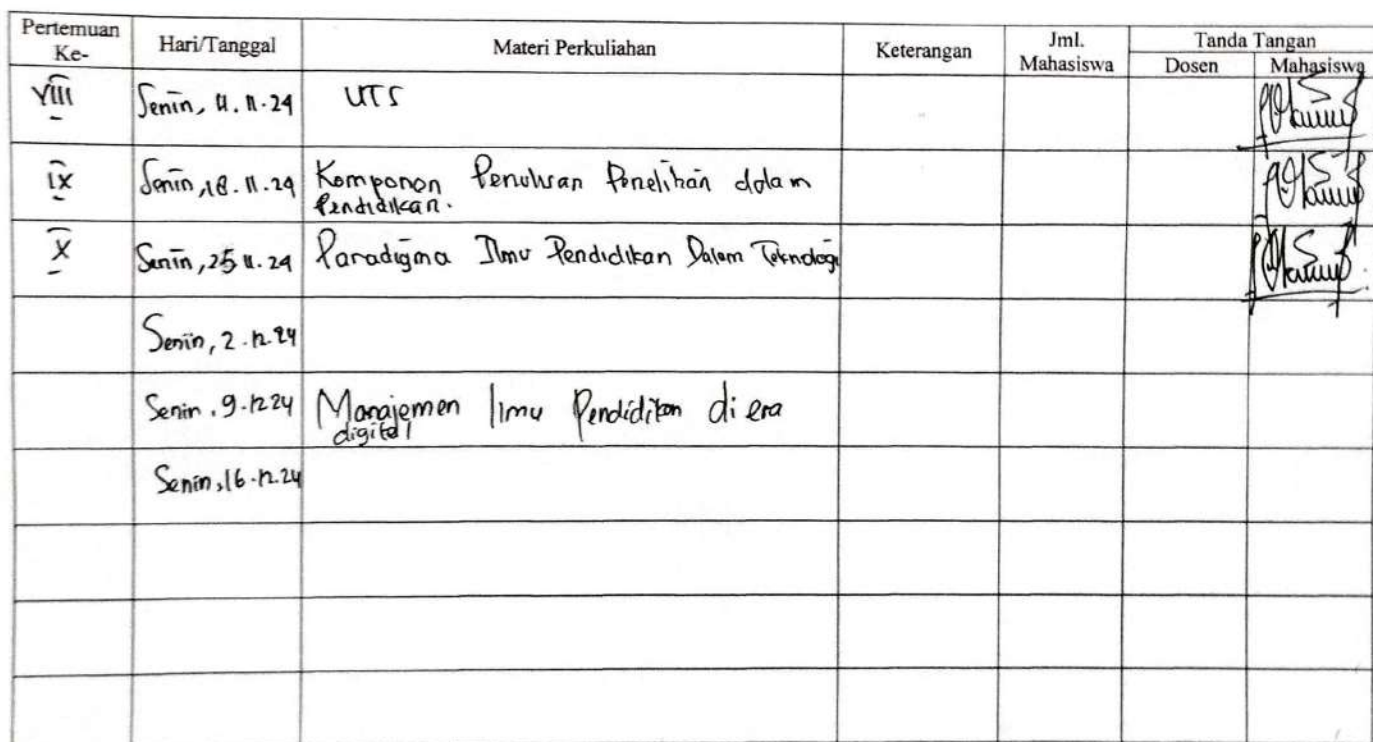 Pertemuan Ke- Hari/Tanggal Materi Perkuliahan Keterangan Jml. Mahasiswa Tanda Tangan
Dosen Mahasiswa
VIII Senin, 4.11.24 UTS
IX Senin, 18.11.24 Komponen Penulisan Penelitian dalam
Pendidikan.
X Senin, 25 11.24 Paradigma Ilmu Pendidikan Dalam Teknologi
Senin, 2.12.24
Senin, 9.12 24 Manajemen Ilmu Pendidikan di era
digital
Senin, 16.12.24